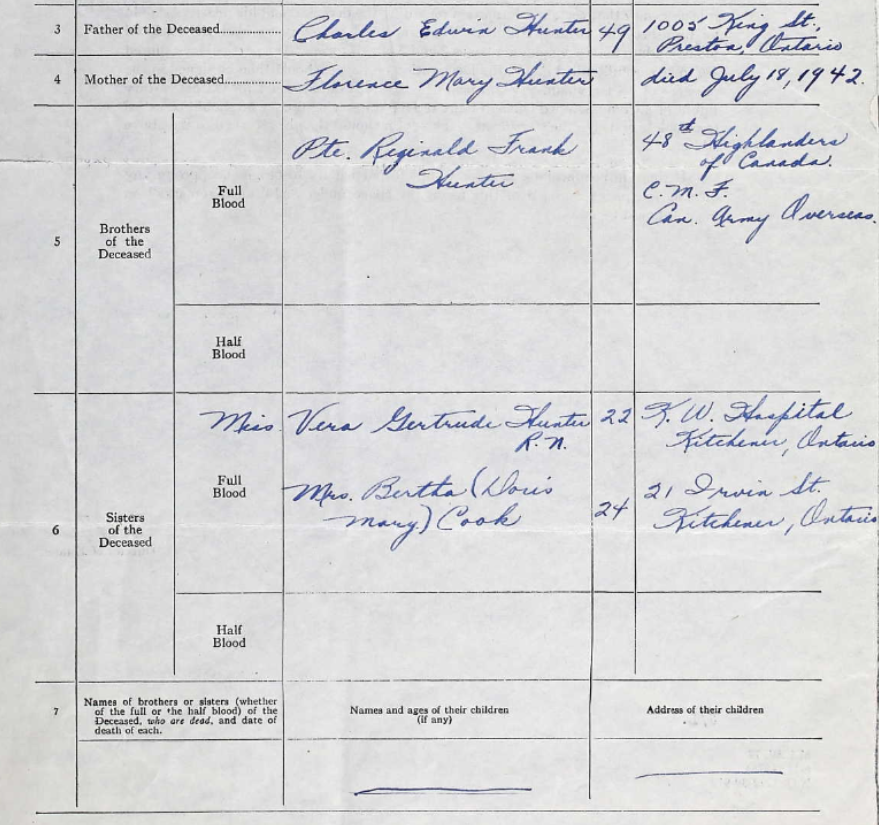 3 Father of the Deceased.................. Charles Edwin Hunter 49 1005 King St.,
Preston, Ontario
4 Mother of the Deceased................. Florence Mary Hunter died July 18, 1942.
5
Brothers
of the
Deceased
Full
Blood
Pte. Reginald Frank
Hunter
48th Highlanders
of Canada.
C. M. F.
Can. Army Overseas.
Half
Blood
6
Sisters
of the
Deceased
Full
Blood
Miss Vera Gertrude Hunter 22 K. W. Hospital
R. N. Kitchener, Ontario
Mrs. Bertha (Doris 24 21 Irwin St.
Mary) Cook Kitchener, Ontario
Half
Blood
7
Names of brothers or sisters (whether
of the full or the half blood) of the
Deceased, who are dead, and date of
death of each.
Names and ages of their children
(if any)
Address of their children